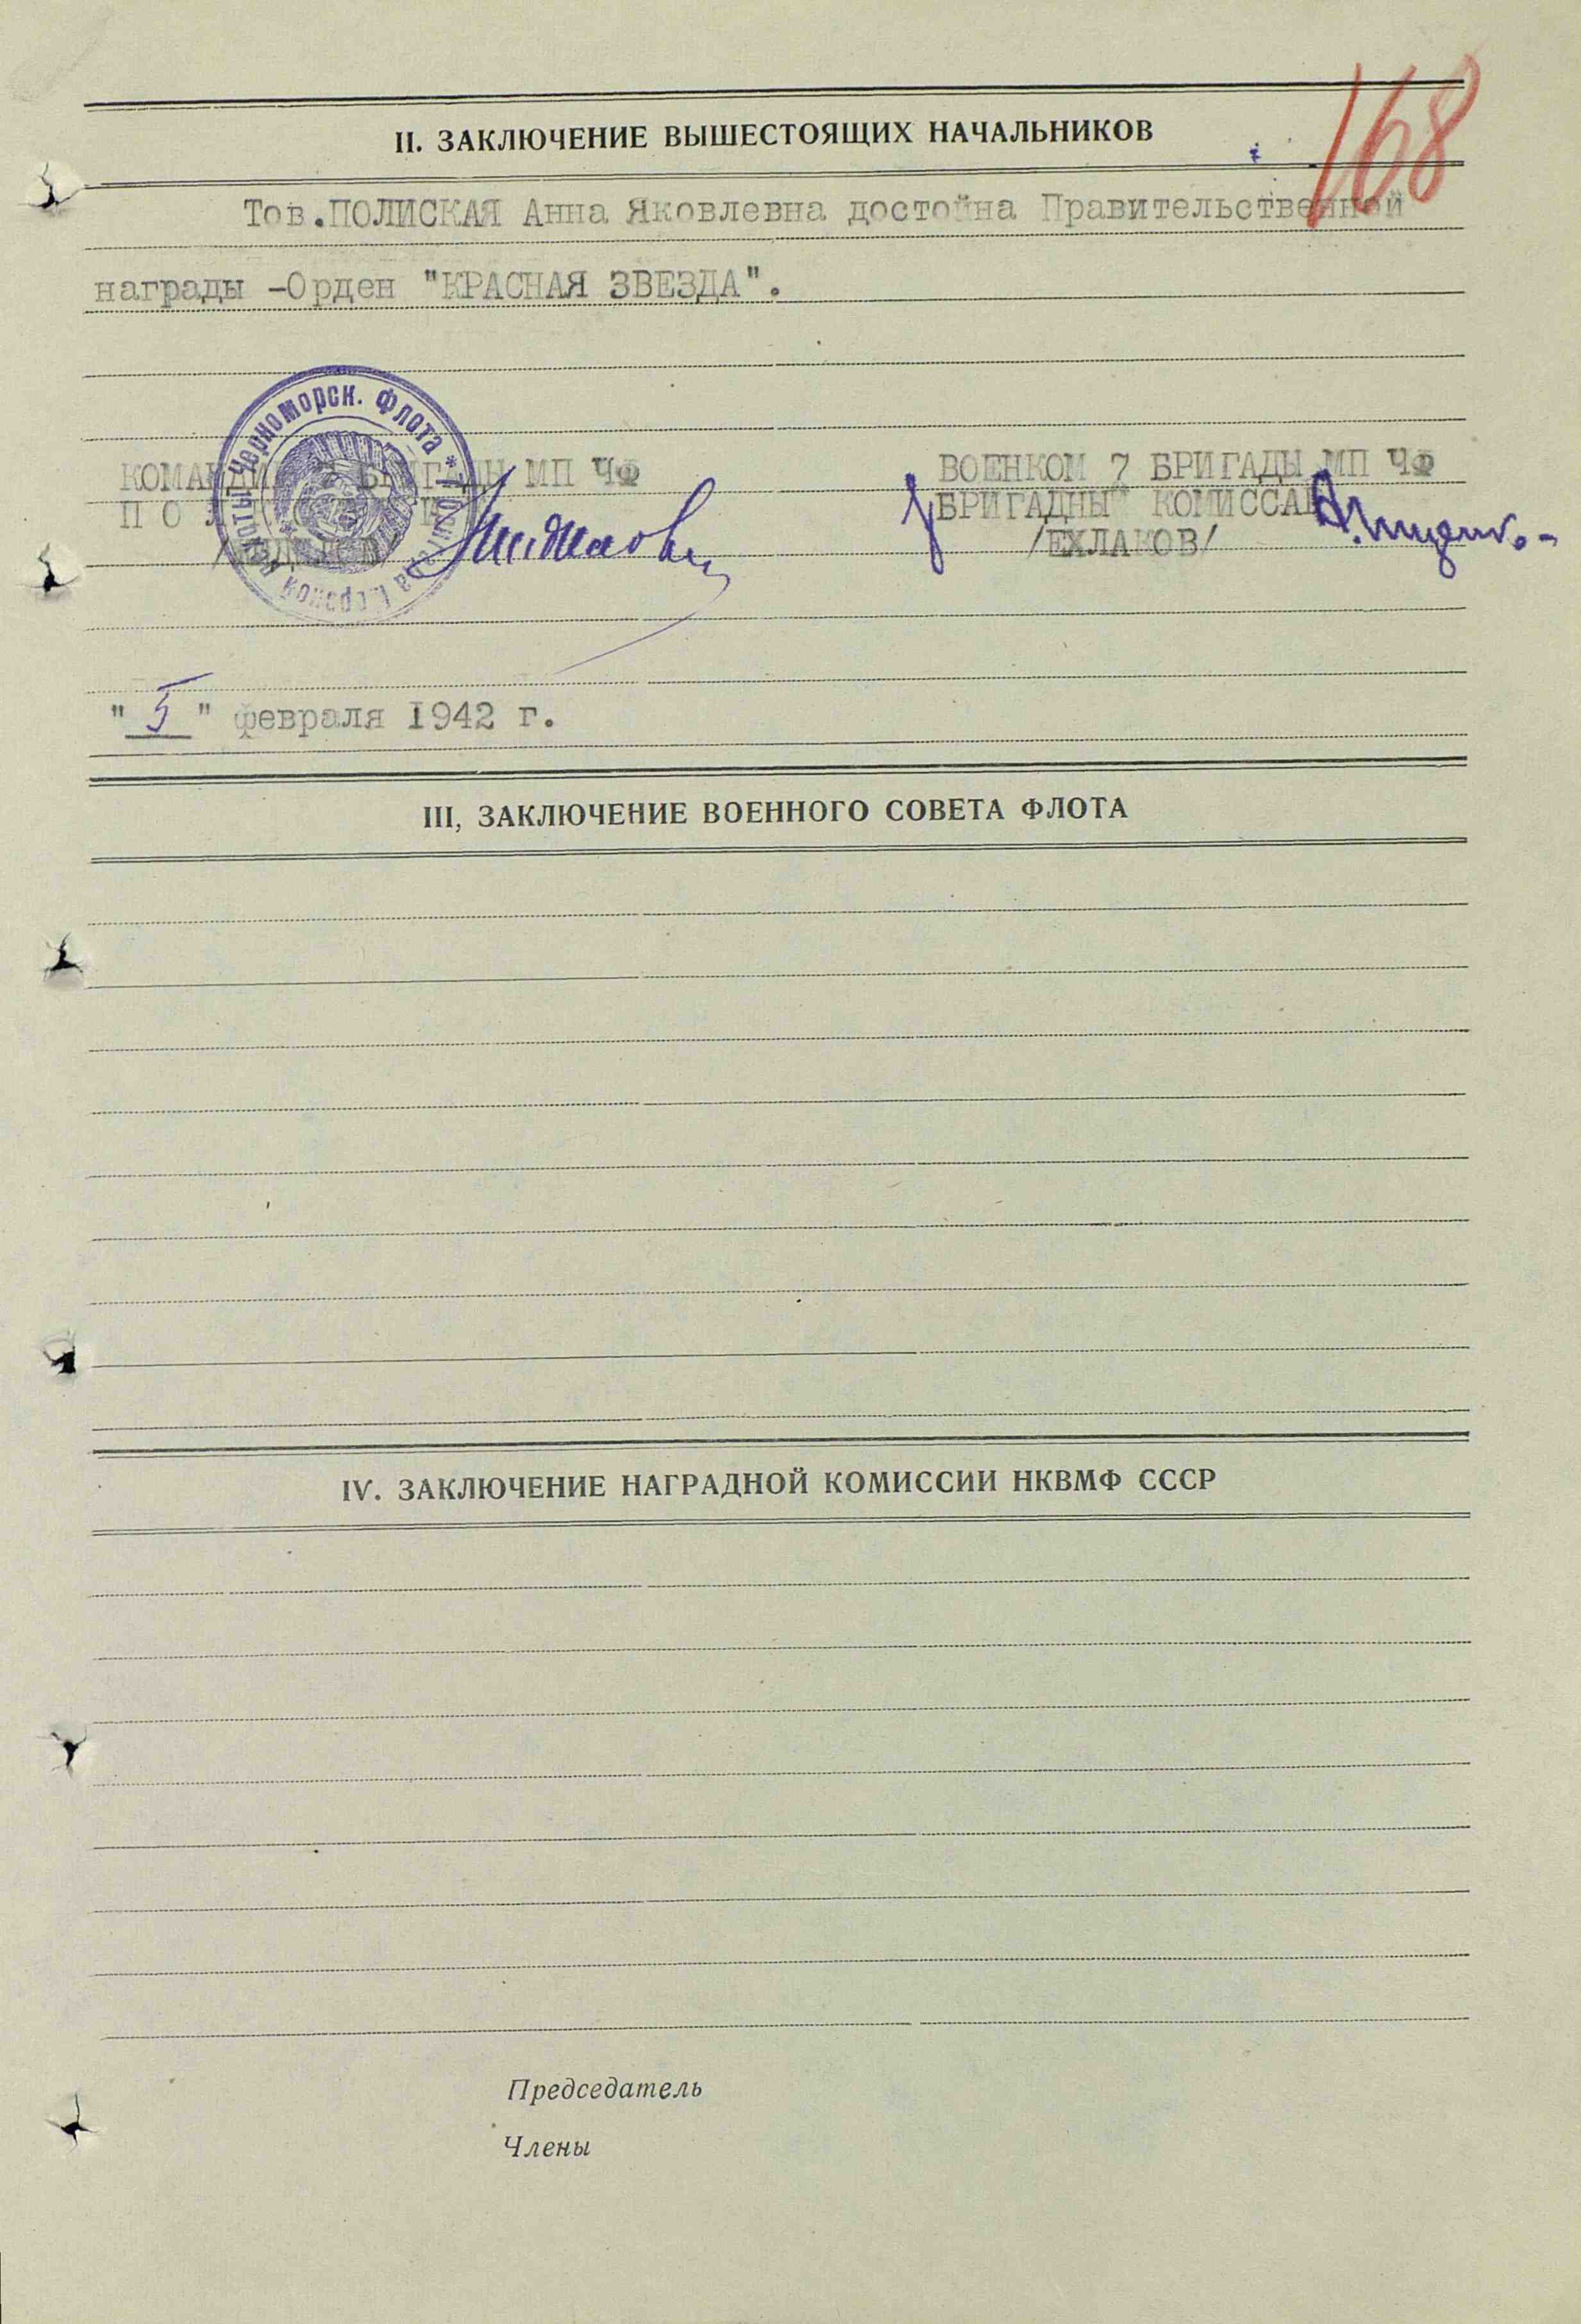 168
II. ЗАКЛЮЧЕНИЕ ВЫШЕСТОЯЩИХ НАЧАЛЬНИКОВ
Тов.ПОЛИСКАЯ Анна Яковлевна достойна Правительственной
награды -Орден "КРАСНАЯ ЗВЕЗДА".
Черноморск. Флота * 7 бригада Морской пехоты
КОМАНДИР 7 БРИГАДЫ МП ЧФ
ВОЕНКОМ 7 БРИГАДЫ МП ЧФ
БРИГАДНЫЙ КОМИССАР
/ЕХЛАКОВ/
"5" февраля 1942 г.
III, ЗАКЛЮЧЕНИЕ ВОЕННОГО СОВЕТА ФЛОТА
IV. ЗАКЛЮЧЕНИЕ НАГРАДНОЙ КОМИССИИ НКВМФ СССР
Председатель
Члены